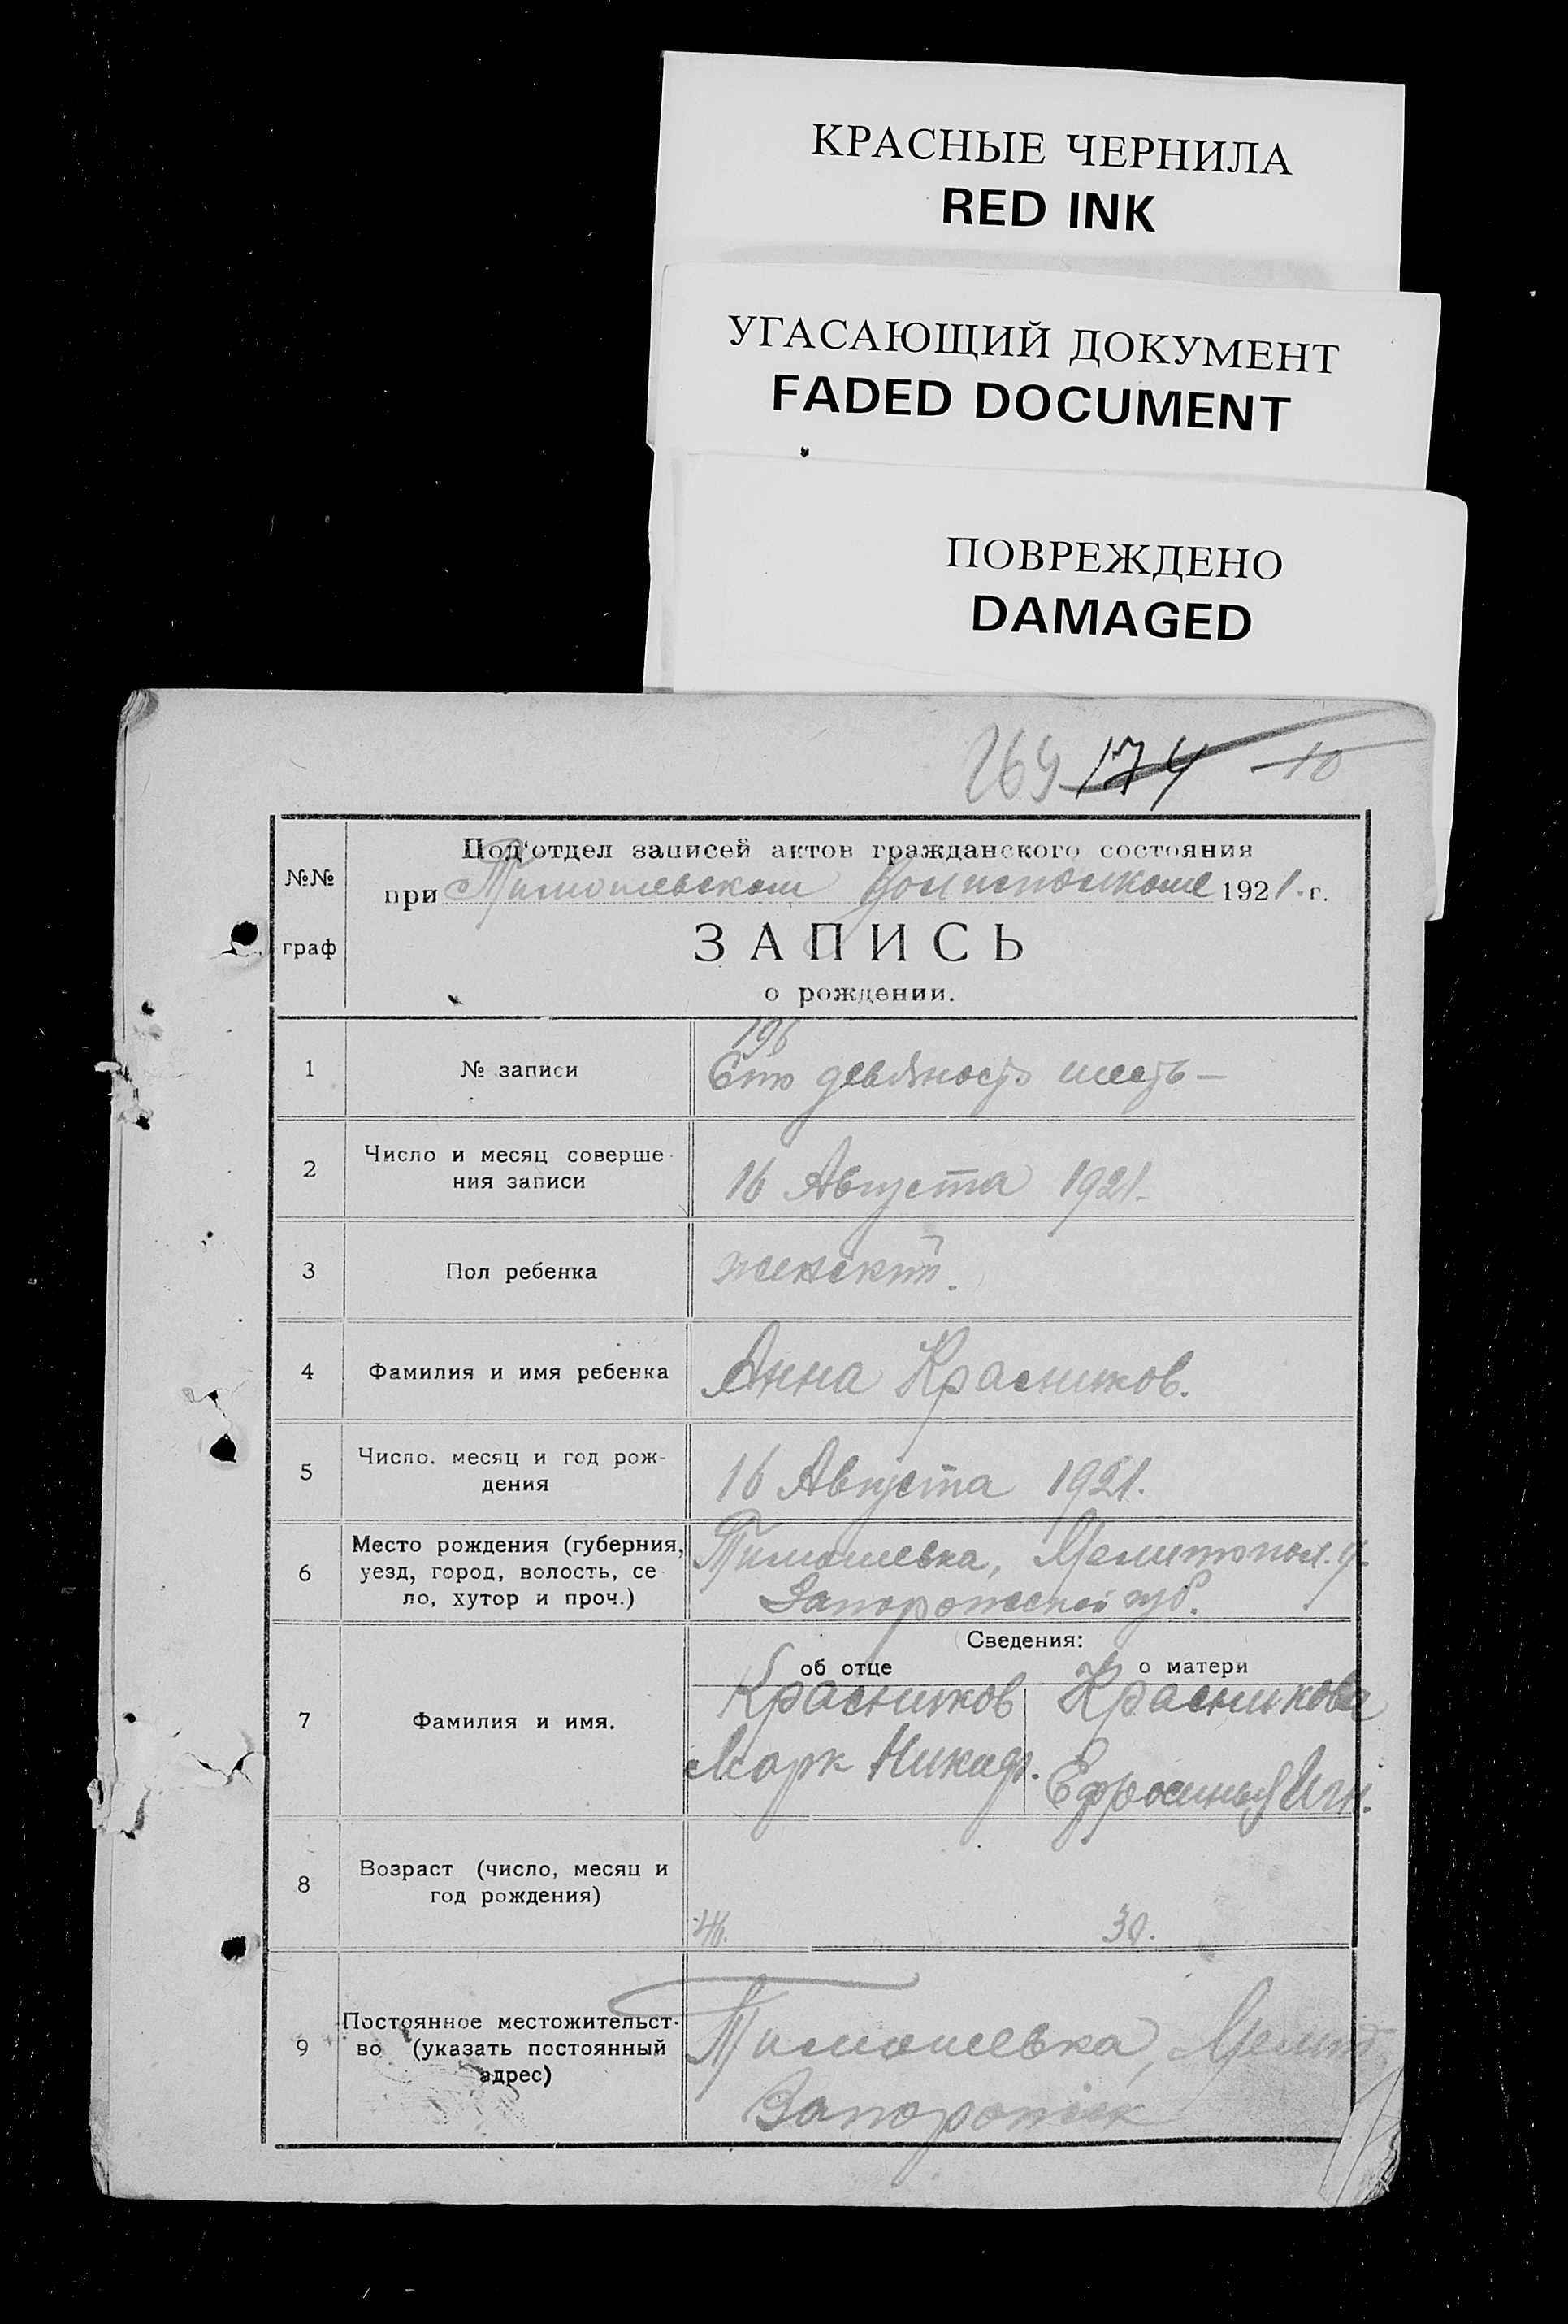 КРАСНЫЕ ЧЕРНИЛА
RED INK
УГАСАЮЩИЙ ДОКУМЕНТ
FADED DOCUMENT
ПОВРЕЖДЕНО
DAMAGED
269 174 10
№№ граф
Под'отдел записей актов гражданского состояния
при Тимошевском Волисполкоме 1921 г.
ЗАПИСЬ
о рождении.
196
1 № записи Сто девяносто шесть —
2 Число и месяц соверше
ния записи 16 Августа 1921.
3 Пол ребенка женский.
4 Фамилия и имя ребенка Анна Красников.
5 Число. месяц и год рож-
дения 16 Августа 1921.
6 Место рождения (губерния, Тимошевка, Мелитопол. у.
уезд, город, волость, се
ло, хутор и проч.) Запорожской губ.
Сведения:
об отце о матери
7 Фамилия и имя. Красников Красникова
Марк Никиф. Ефросинья Игн.
8 Возраст (число, месяц и
год рождения)
46. 39.
9 Постоянное местожительст-
во (указать постоянный
адрес) Тимошевка, Мелит
Запорожск